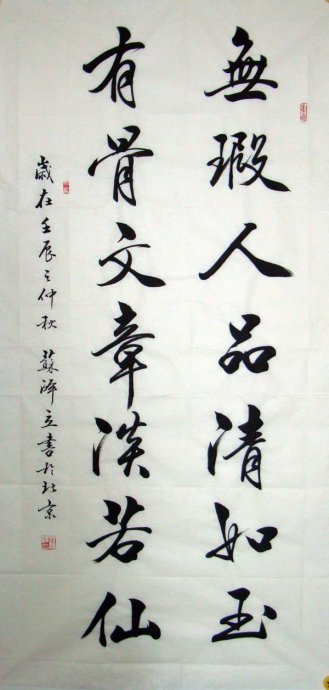 無瑕人品清如玉
有骨文章淡若仙
歲在壬辰之仲秋 蘇澤立書於北京